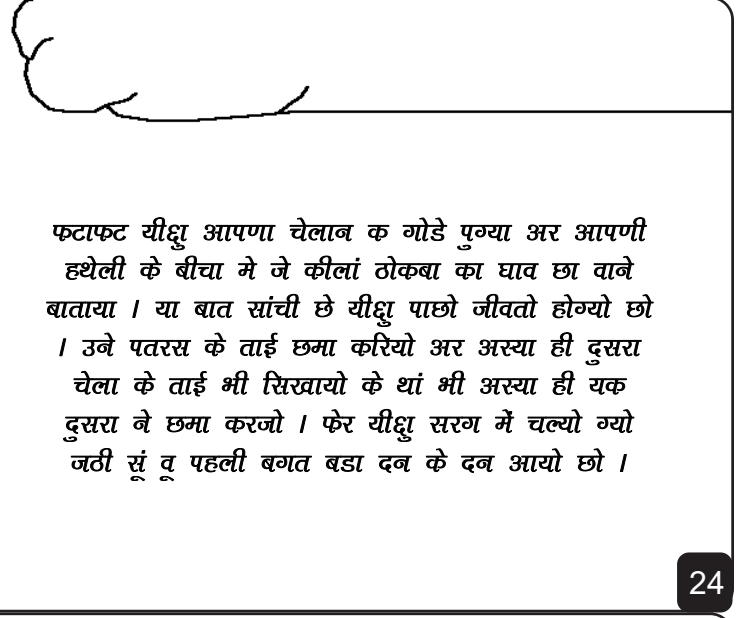 फटाफट यीशु आपणा चेलान क गोडे पुग्या अर आपणी
हथेली के बीचा मे जे कीलां ठोकबा का घाव छा वाने
बाताया । या बात सांची छे यीशु पाछो जीवतो होग्यो छो
। उने पतरस के ताई छमा करियो अर अस्या ही दुसरा
चेला के ताई भी सिखायो के थां भी अस्या ही यक
दुसरा ने छमा करजो । फेर यीशु सरग में चल्यो ग्यो
जठी सूं वू पहली बगत बडा दन के दन आयो छो ।
24